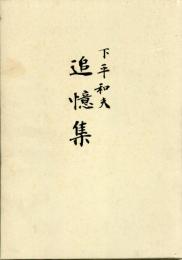 下平和夫
追憶集